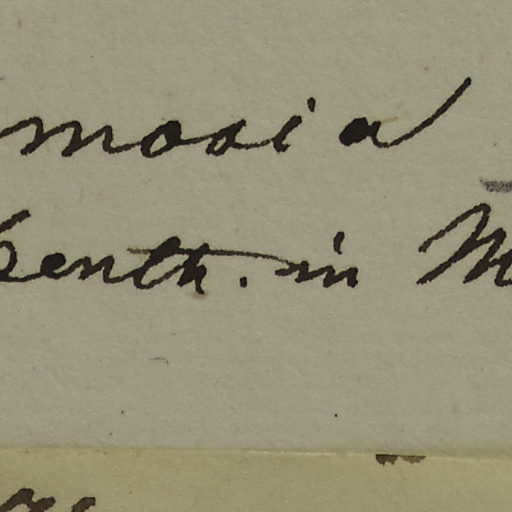 mosia
Benth. in M